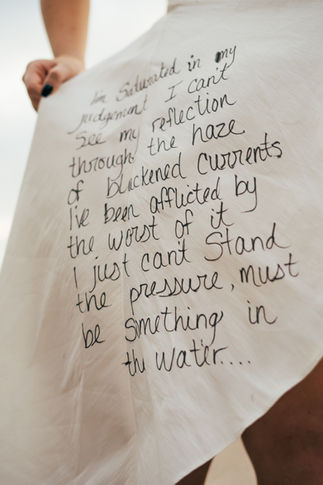 I'm Saturated in my
judgement I can't
See my reflection
through the haze
of blackened currents
I've been afflicted by
the worst of it
I just can't Stand
the pressure, must
be Something in
the water....